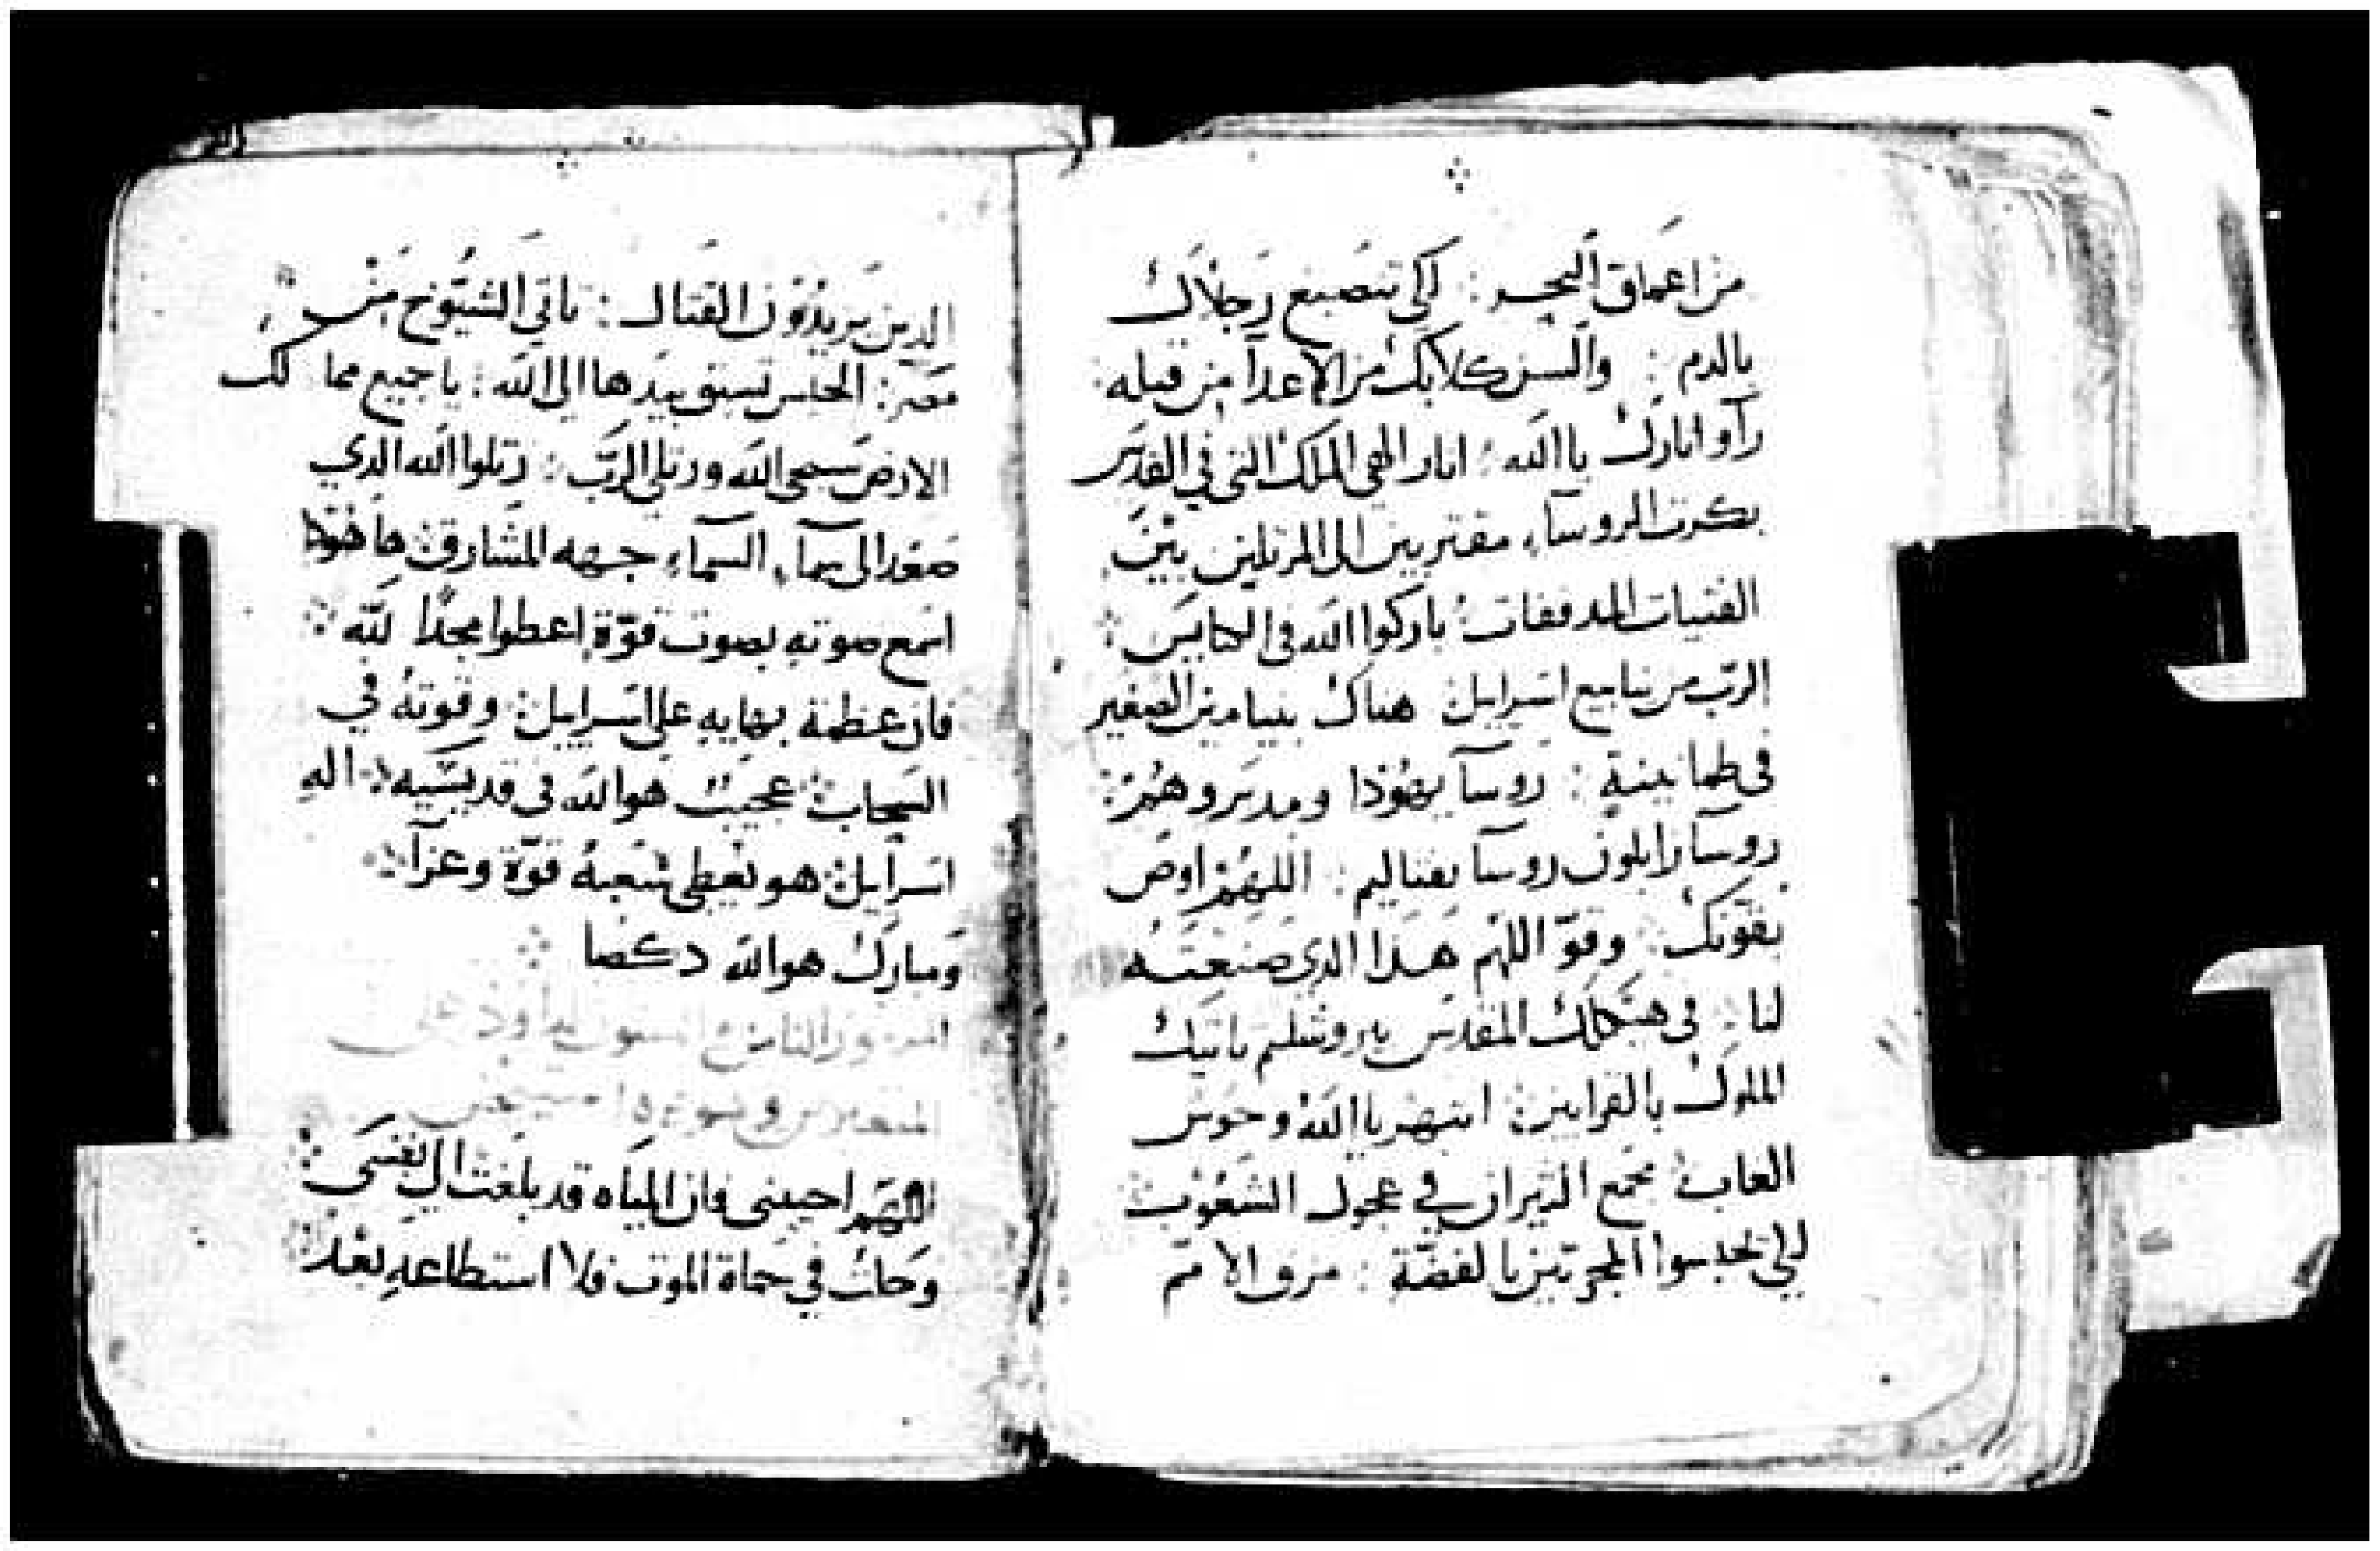 من اعماق البحر : لكي تنصبغ رجلاك
بالدم : والسن كلابك من الاعدآ من قبله :
رآو اثارك ياالله : اثار الهي الملك التي في القدس
بكرت الروساء مقتربين الى المرتلين بين
الفتيات المدففات : باركوا الله فى الكنايس :
الرب من ينابيع اسراييل هناك بنيامين الصغير
فى طمانينة : روسآ يهوذا ومدبروهم :
روسآ زابلون روسآ نفتاليم : اللهم اوص
بقوتك : وقوّ اللهم هذا الذي صنعته
لنا : في هيكلك المقدس بيروشلم ياتيك
الملوك بالقرابين : انتهر ياالله وحوش
الغاب مجمع الثيران في عجول الشعوب
ليلا يحبسوا المجربين بالفضّة : مزق الامم
الدين يريدون القتال : تاتي الشيوخ من
مصر : الحبش تسبق بيدها الى الله : يا جميع ممالك
الارض سبحى الله ورتلي الرّب : رتلوا الله الدي
صعد الى سماء السمآء جهه المشارق : هاهوذا
اسمع صوته بصوت قوّة اعطوا مجدًا للّه :
فان عظمة بهايه على اسراييل : وقوته في
السحاب : عجيبٌ هو الله فى قديسيه : اله
اسراييل : هو يعطى شعبه قوّة وعزآ :
ومبارك هو الله دكصا
اللهم احيينى فان المياه قد بلغت الى نفسي :
وحلت في حماة الموت فلا استطاعه بعد :